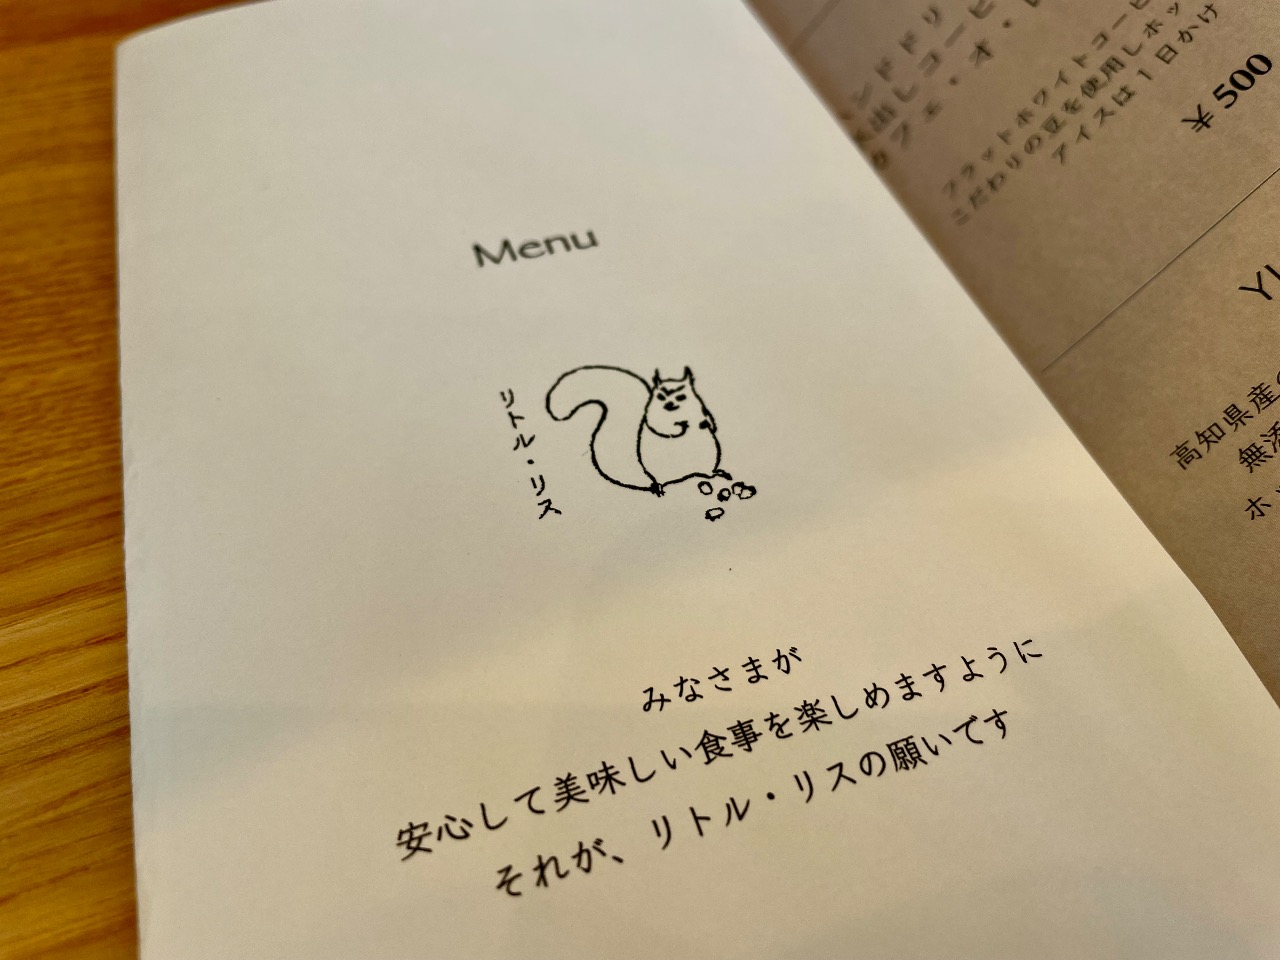 Menu
リトル・リス
みなさまが
安心して美味しい食事を楽しめますように
それが、リトル・リスの願いです
ンド ドリ
出しコーヒ
カフェ・オ・レ
フラットホワイトコーヒ
こだわりの豆を使用しホッ
アイスは1日かけ
¥500
YU
高知県産の
無添
ホッ